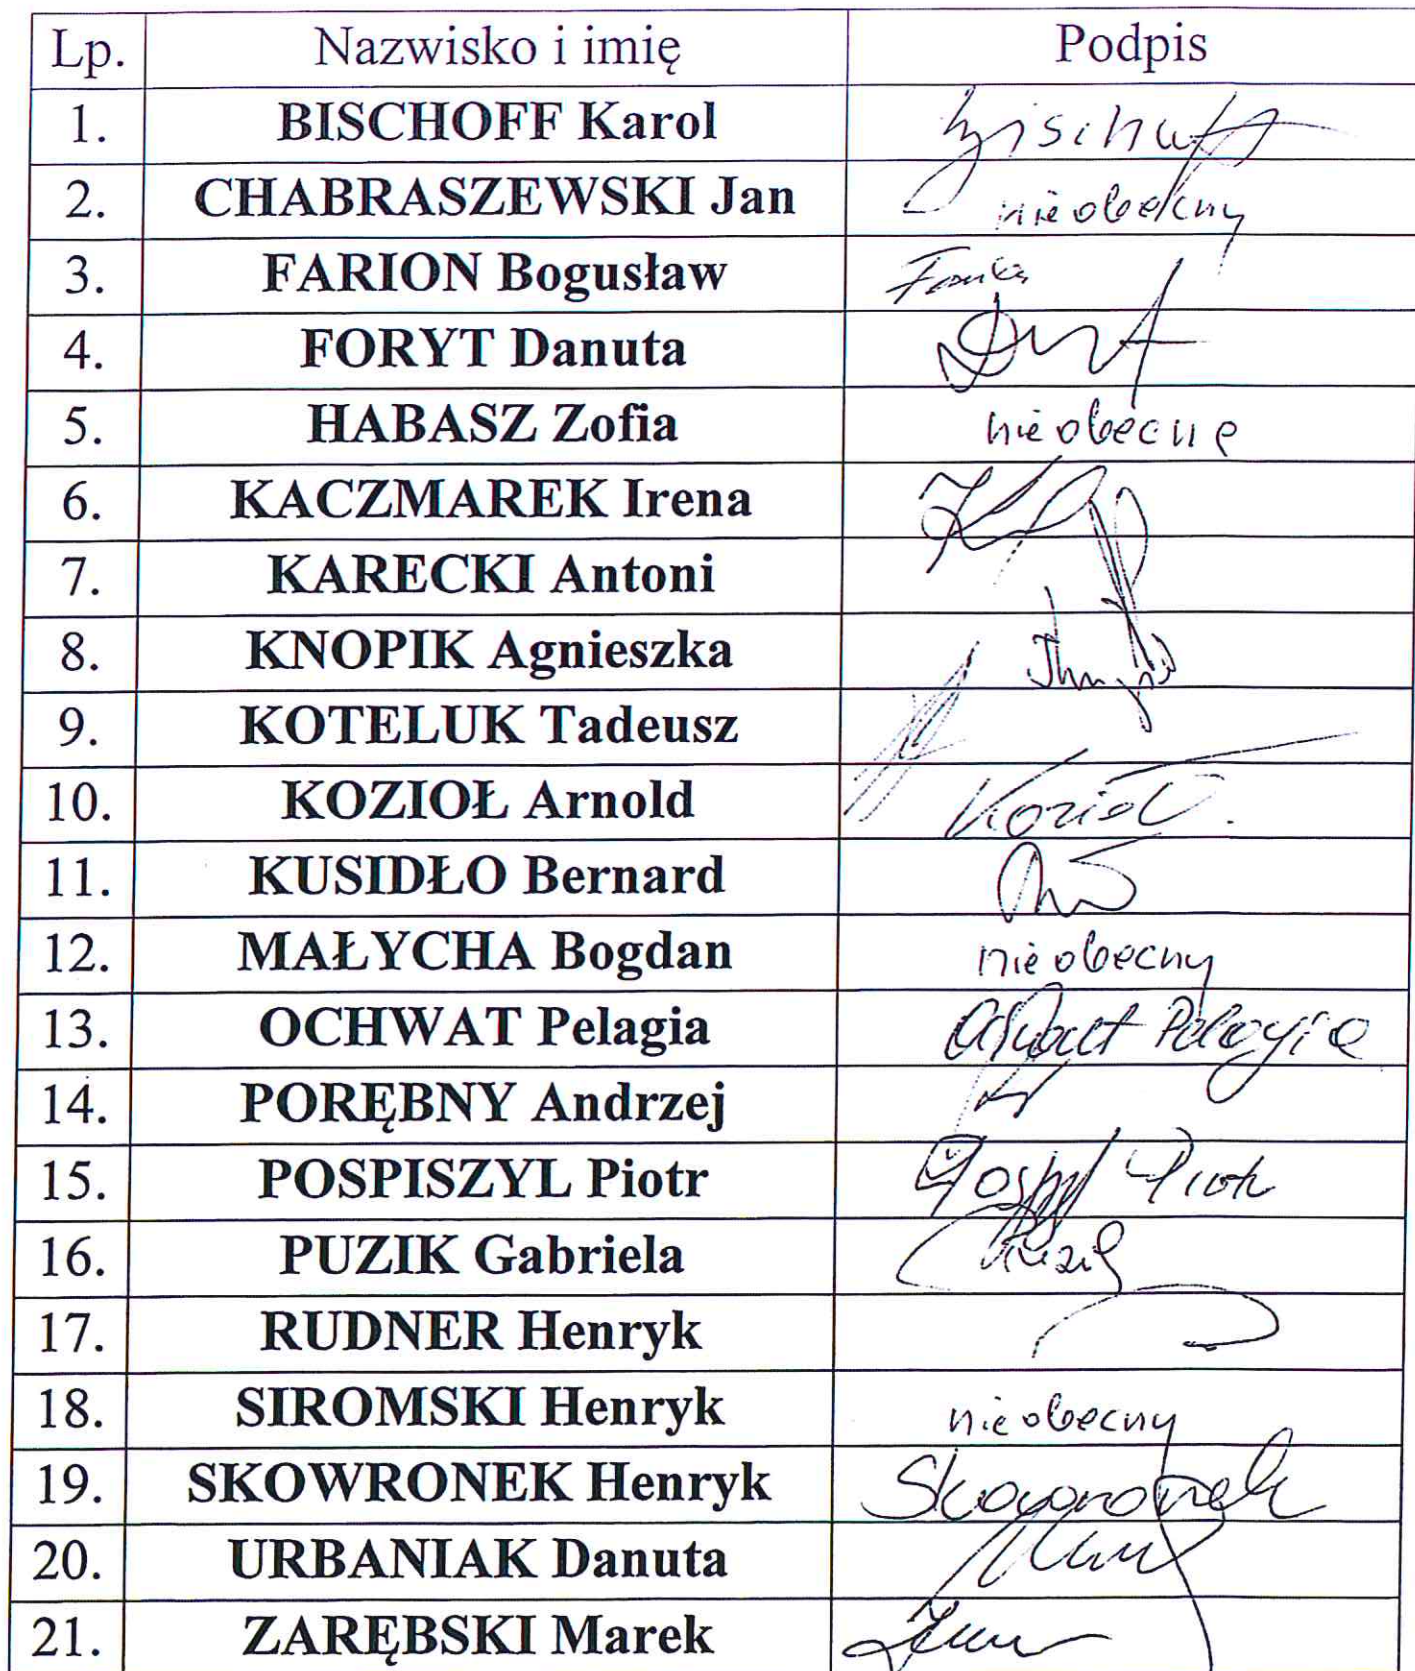 Lp. Nazwisko i imię Podpis
1. BISCHOFF Karol Bischoff
2. CHABRASZEWSKI Jan nieobecny
3. FARION Bogusław
4. FORYT Danuta
5. HABASZ Zofia nieobecna
6. KACZMAREK Irena
7. KARECKI Antoni
8. KNOPIK Agnieszka
9. KOTELUK Tadeusz
10. KOZIOŁ Arnold Kozioł
11. KUSIDŁO Bernard
12. MAŁYCHA Bogdan nieobecny
13. OCHWAT Pelagia Ochwat Pelagia
14. PORĘBNY Andrzej
15. POSPISZYL Piotr Piotr
16. PUZIK Gabriela Puzik
17. RUDNER Henryk
18. SIROMSKI Henryk nieobecny
19. SKOWRONEK Henryk Skowronek
20. URBANIAK Danuta
21. ZARĘBSKI Marek